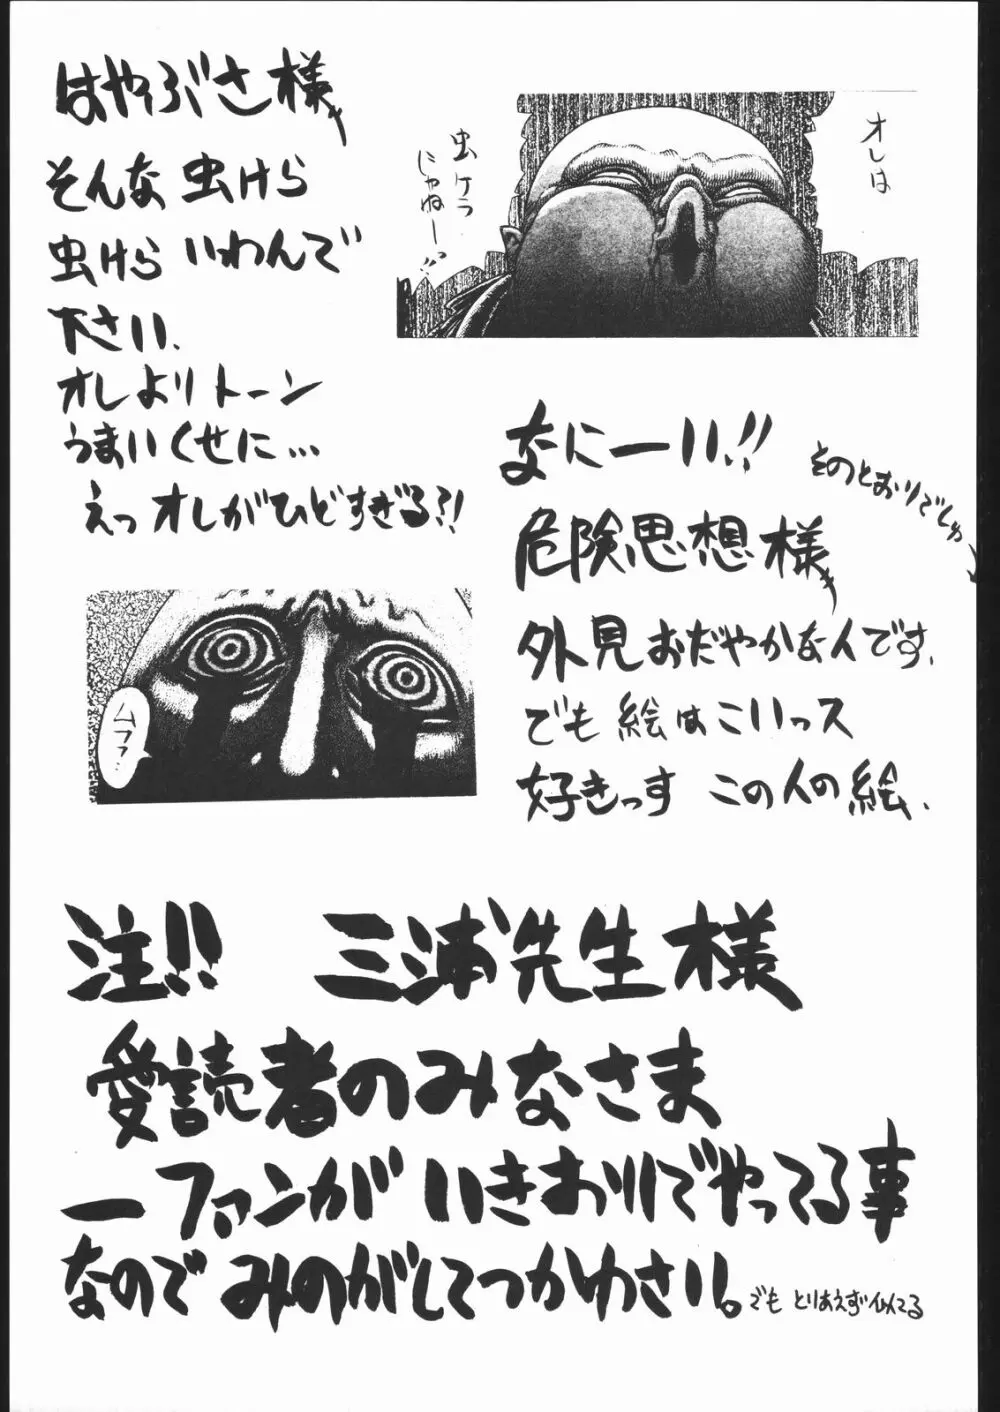 はやぶさ様
そんな虫けら
虫けら いわんで
下さい、
オレよりトーン
うまいくせに…
えっオレがひどすぎる?!
オレは
虫ケラ
じゃねー!!
なにーい!!
そのとおりでしゅ
危険思想様
外見おだやかな人です、
でも 絵はこいっス
好きっす この人の絵、
ムファ…
注!! 三浦先生様
愛読者のみなさま
一ファンが いきおいでやってる事
なので みのがしてつかわさい。
でも とりあえず似てる